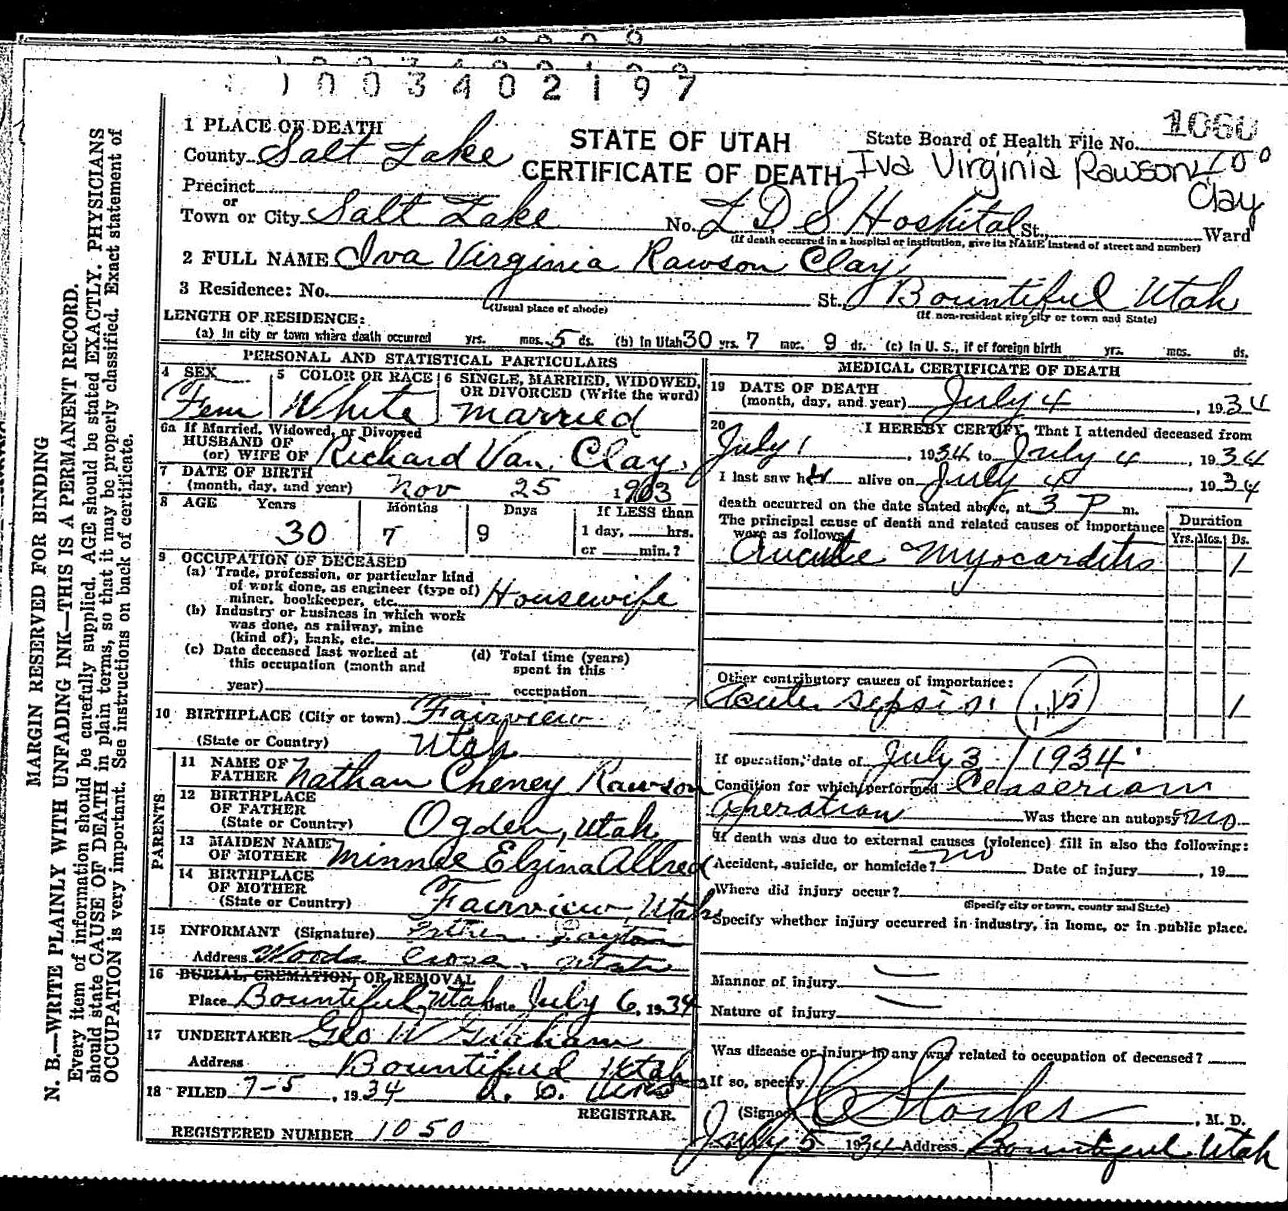 1003402197
1 PLACE OF DEATH
County Salt Lake
STATE OF UTAH
CERTIFICATE OF DEATH
State Board of Health File No. 1060
Iva Virginia Rawson
Clay
Precinct
or
Town or City Salt Lake No. L D S Hospital St., Ward
(If death occurred in a hospital or institution, give its NAME instead of street and number)
2 FULL NAME Iva Virginia Rawson Clay
3 Residence: No. St. Bountiful Utah
(Usual place of abode) (If non-resident give city or town and State)
LENGTH OF RESIDENCE:
(a) In city or town where death occurred yrs. mos. 5 ds. (b) In Utah 30 yrs. 7 mos. 9 ds. (c) In U. S., if of foreign birth yrs. mos. ds.
PERSONAL AND STATISTICAL PARTICULARS
4 SEX Fem
5 COLOR OR RACE White
6 SINGLE, MARRIED, WIDOWED,
OR DIVORCED (Write the word)
married
6a If Married, Widowed, or Divorced
HUSBAND OF
(or) WIFE OF Richard Van Clay
7 DATE OF BIRTH
(month, day, and year) Nov 25 1903
8 AGE Years Months Days If LESS than
30 7 9 1 day, hrs.
or min.?
9 OCCUPATION OF DECEASED
(a) Trade, profession, or particular kind
of work done, as engineer (type of)
miner, bookkeeper, etc. Housewife
(b) Industry or business in which work
was done, as railway, mine
(kind of), bank, etc.
(c) Date deceased last worked at
this occupation (month and
year)
(d) Total time (years)
spent in this
occupation
10 BIRTHPLACE (City or town) Fairview
(State or Country) Utah
PARENTS
11 NAME OF
FATHER Nathan Cheney Rawson
12 BIRTHPLACE
OF FATHER
(State or Country) Ogden, Utah
13 MAIDEN NAME
OF MOTHER Minnie Elzina Allred
14 BIRTHPLACE
OF MOTHER
(State or Country) Fairview, Utah
15 INFORMANT (Signature) Layton
Address Woods Cross, Utah
16 BURIAL, CREMATION, OR REMOVAL
Place Bountiful Utah Date July 6, 1934
17 UNDERTAKER Geo W Graham
Address Bountiful Utah
18 FILED 7-5, 1934
REGISTRAR.
REGISTERED NUMBER 1050
MEDICAL CERTIFICATE OF DEATH
19 DATE OF DEATH
(month, day, and year) July 4, 1934
20 I HEREBY CERTIFY, That I attended deceased from
July 1, 1934 to July 4, 1934
I last saw her alive on July 4, 1934
death occurred on the date stated above, at 3 P m.
The principal cause of death and related causes of importance
were as follows:
Duration
Yrs. Mos. Ds.
Accute Myocarditis 1
Other contributory causes of importance:
Acute sepsis 1
If operation, date of July 3 1934
Condition for which performed Ceaserian
operation Was there an autopsy? no
If death was due to external causes (violence) fill in also the following:
Accident, suicide, or homicide? no Date of injury, 19
Where did injury occur?
(Specify city or town, county and State)
Specify whether injury occurred in industry, in home, or in public place.
Manner of injury
Nature of injury
Was disease or injury in any way related to occupation of deceased?
If so, specify
(Signed) J C Stocks, M. D.
July 5 1934 Address Bountiful Utah
MARGIN RESERVED FOR BINDING
N. B.—WRITE PLAINLY WITH UNFADING INK—THIS IS A PERMANENT RECORD.
Every item of information should be carefully supplied. AGE should be stated EXACTLY. PHYSICIANS
should state CAUSE OF DEATH in plain terms, so that it may be properly classified. Exact statement of
OCCUPATION is very important. See instructions on back of certificate.